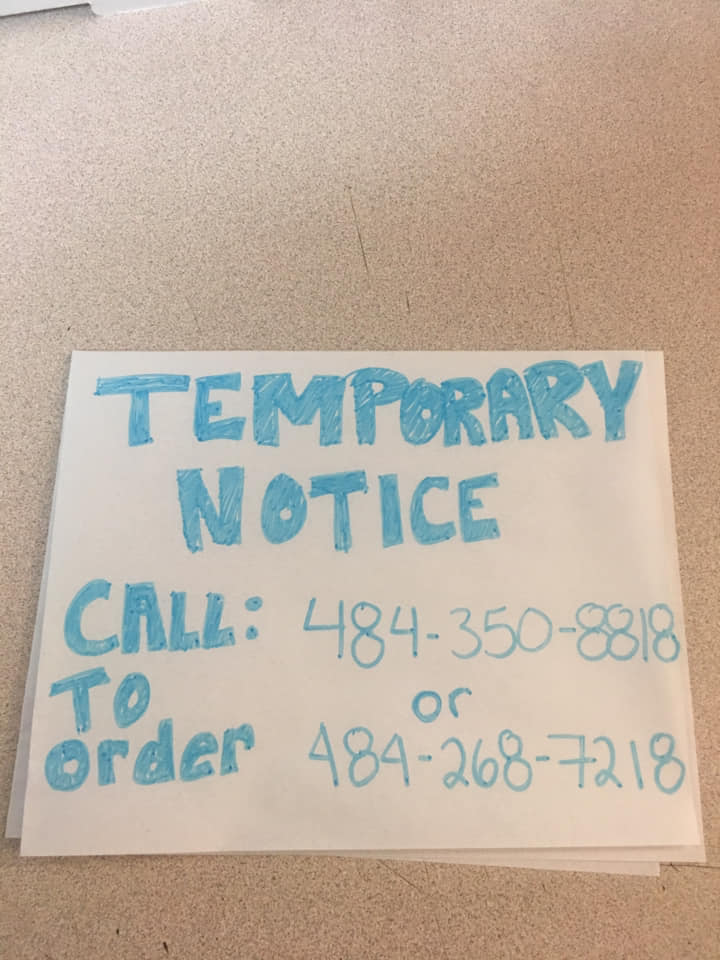 TEMPORARY
NOTICE
CALL: 484-350-8818
TO or
order 484-268-7218